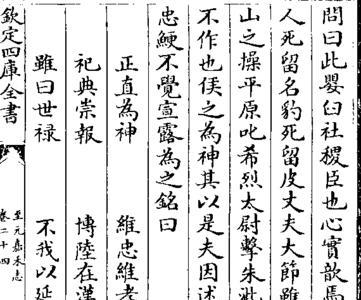 問曰此嬰臼社稷臣也心實歆焉
人死留名豹死留皮丈夫大節雖
山之操平原叱希烈太尉擊朱泚
不作也侯之為神其以是夫因述
忠鯁不覺宣露為之銘曰
正直為神　維忠維孝
祀典崇報　博陸在漢
雖曰世禄　不我以延
欽定四庫全書
至元嘉禾志
卷二十四